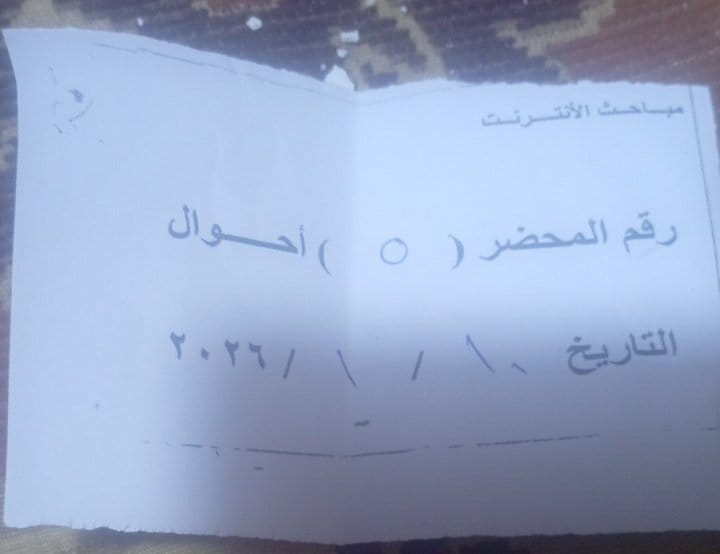 مباحث الأنترنت
رقم المحضر ( ٥ ) أحوال
التاريخ ١٠ / ١ / ٢٠٢٦